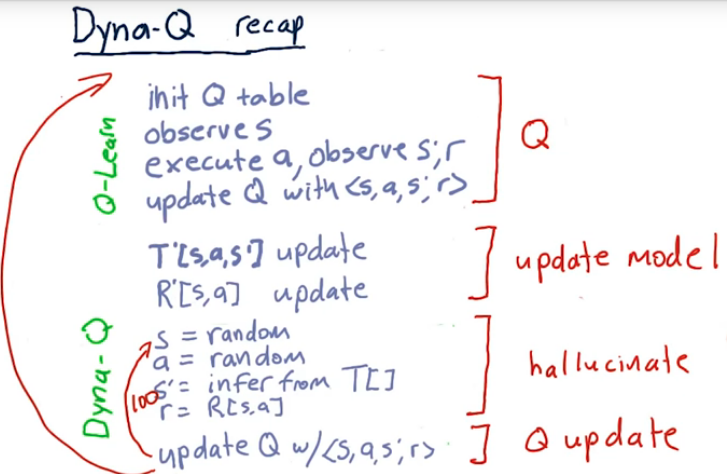 Dyna-Q recap
init Q table
observe s
execute a, observe s', r
update Q with <s, a, s', r>
Q-Learn
Q
T'[s,a,s'] update
R'[s,a] update
update model
Dyna-Q
s = random
a = random
s' = infer from T[]
r = R[s,a]
100
hallucinate
update Q w/<s,a,s',r>
Q update